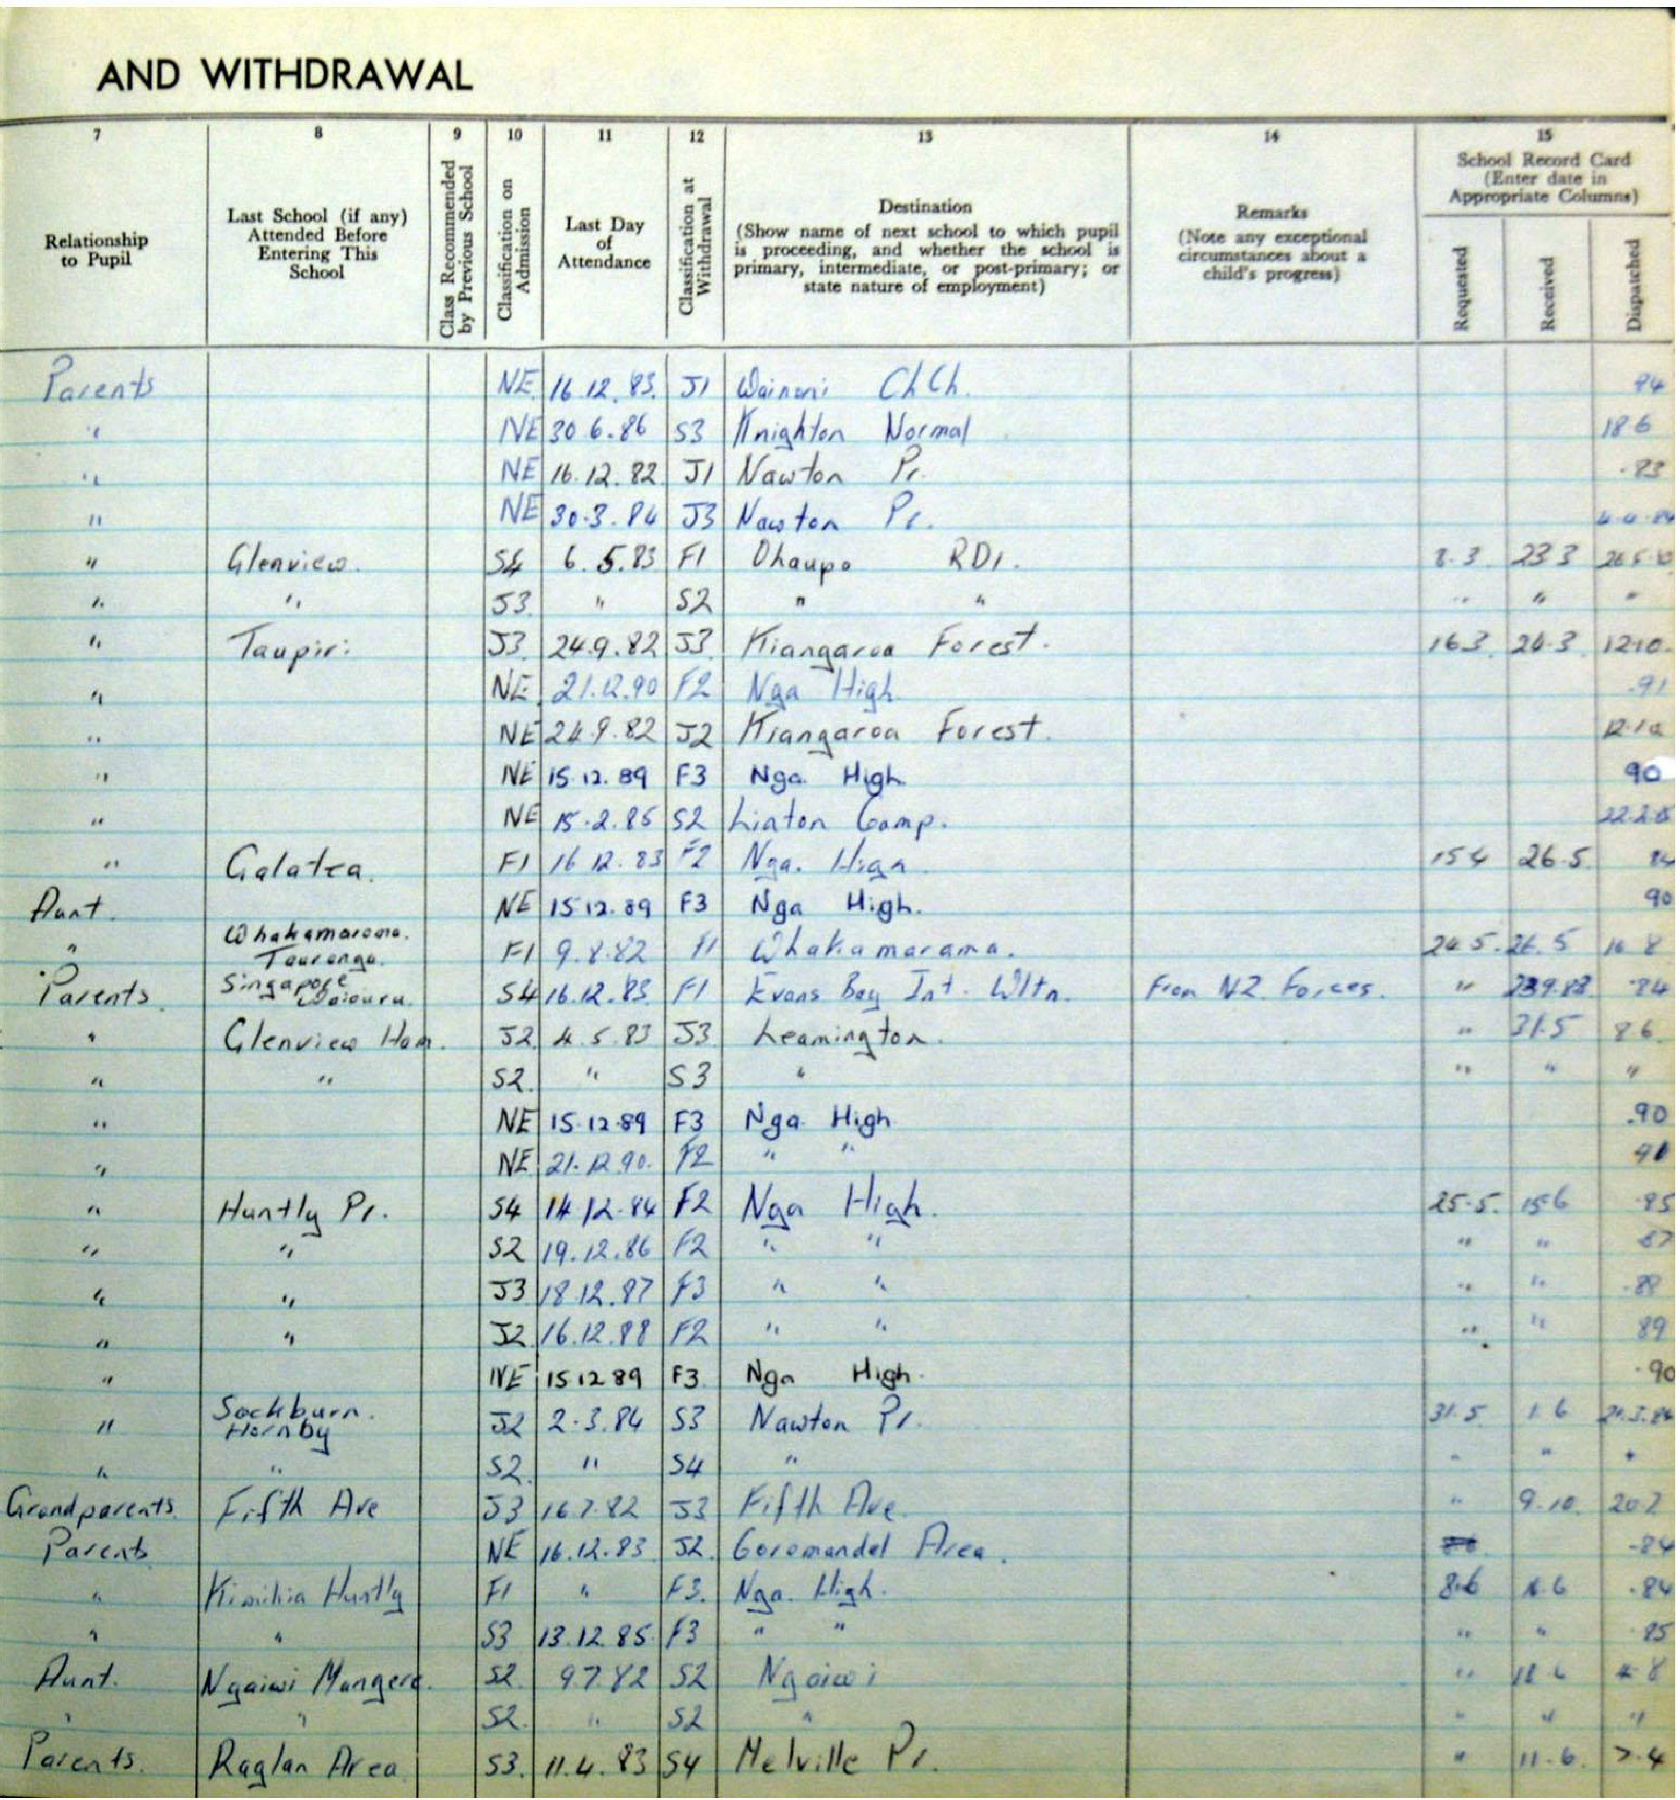 AND WITHDRAWAL
7 8 9 10 11 12 13 14 15
Relationship to Pupil
Last School (if any) Attended Before Entering This School
Class Recommended by Previous School
Classification on Admission
Last Day of Attendance
Classification at Withdrawal
Destination
(Show name of next school to which pupil is proceeding, and whether the school is primary, intermediate, or post-primary; or state nature of employment)
Remarks
(Note any exceptional circumstances about a child's progress)
School Record Card
(Enter date in Appropriate Columns)
Requested Received Dispatched
Parents NE 16.12.83. J1 Wainoni ChCh. 84
" NE 30 6.86 S3 Knighton Normal 18 6
" NE 16.12.82 J1 Nawton Pr. .83
" NE 30.3.84 J3 Nawton Pr. 4.4.84
" Glenview. S4 6.5.83 F1 Ohaupo RD1. 8.3. 23 3
" " J3. " S2 " " " " "
" Taupiri J3. 24.9.82 J3. Kiangaroa Forest. 16 3. 24.3. 12.10.
" NE. 21.12.90 F2 Nga High .91
" NE 24.9.82 J2 Kiangaroa Forest. 12.10
" NE 15.12.89 F3 Nga. High. 90
" NE 15.2.85 S2 Linton Camp. 22.2.85
" Galatea. F1 16 12.83 F2 Nga. High. 15 4 26.5. 84
Aunt. NE 15 12.89 F3 Nga High. 90
" Whakamarama. Tauranga. F1 9.8.82 F1 Whakamarama. 24.5. 26.5 16 8
Parents. Singapore Waiouru. S4 16.12.83. F1 Evans Bay Int. Wltn. From NZ. Forces. " .84
" Glenview Ham. J2. 4.5.83 J3. Leamington. " 31.5 8 6.
" " S2. " S3 " " " "
" NE 15.12.89 F3 Nga High .90
" NE 21.12.90. F2 " " 91
" Huntly Pr. S4 14.12.84 F2 Nga High. 25.5. 15 6 .85
" " S2 19.12.86 F2 " " " " 87
" " J3 18.12.87 F3 " " " " .88
" " J2 16.12.88 F2 " " " " 89
" NE 15 12 89 F3. Nga High. .90
" Sockburn. Hornby J2 2.3.84 S3 Nawton Pr. 31.5. 1.6
" " S2. " S4 " " " "
Grandparents. Fifth Ave J3 16.7.82 J3 Fifth Ave. " 9.10. 20.7
Parents NE 16.12.83 J2. Coromandel Area. -84
" Kimihia Huntly F1 " F3. Nga. High. 8.6 .84
" " S3 13.12.85. F3 " " " " 85
Aunt. Ngaiwi Mangere. S2. 9.7.82 S2 Ngaiwi "
" " S2. " S2 " " " "
Parents. Raglan Area S3. 11.4.83 S4 Melville Pr. " 11.6. 7.4